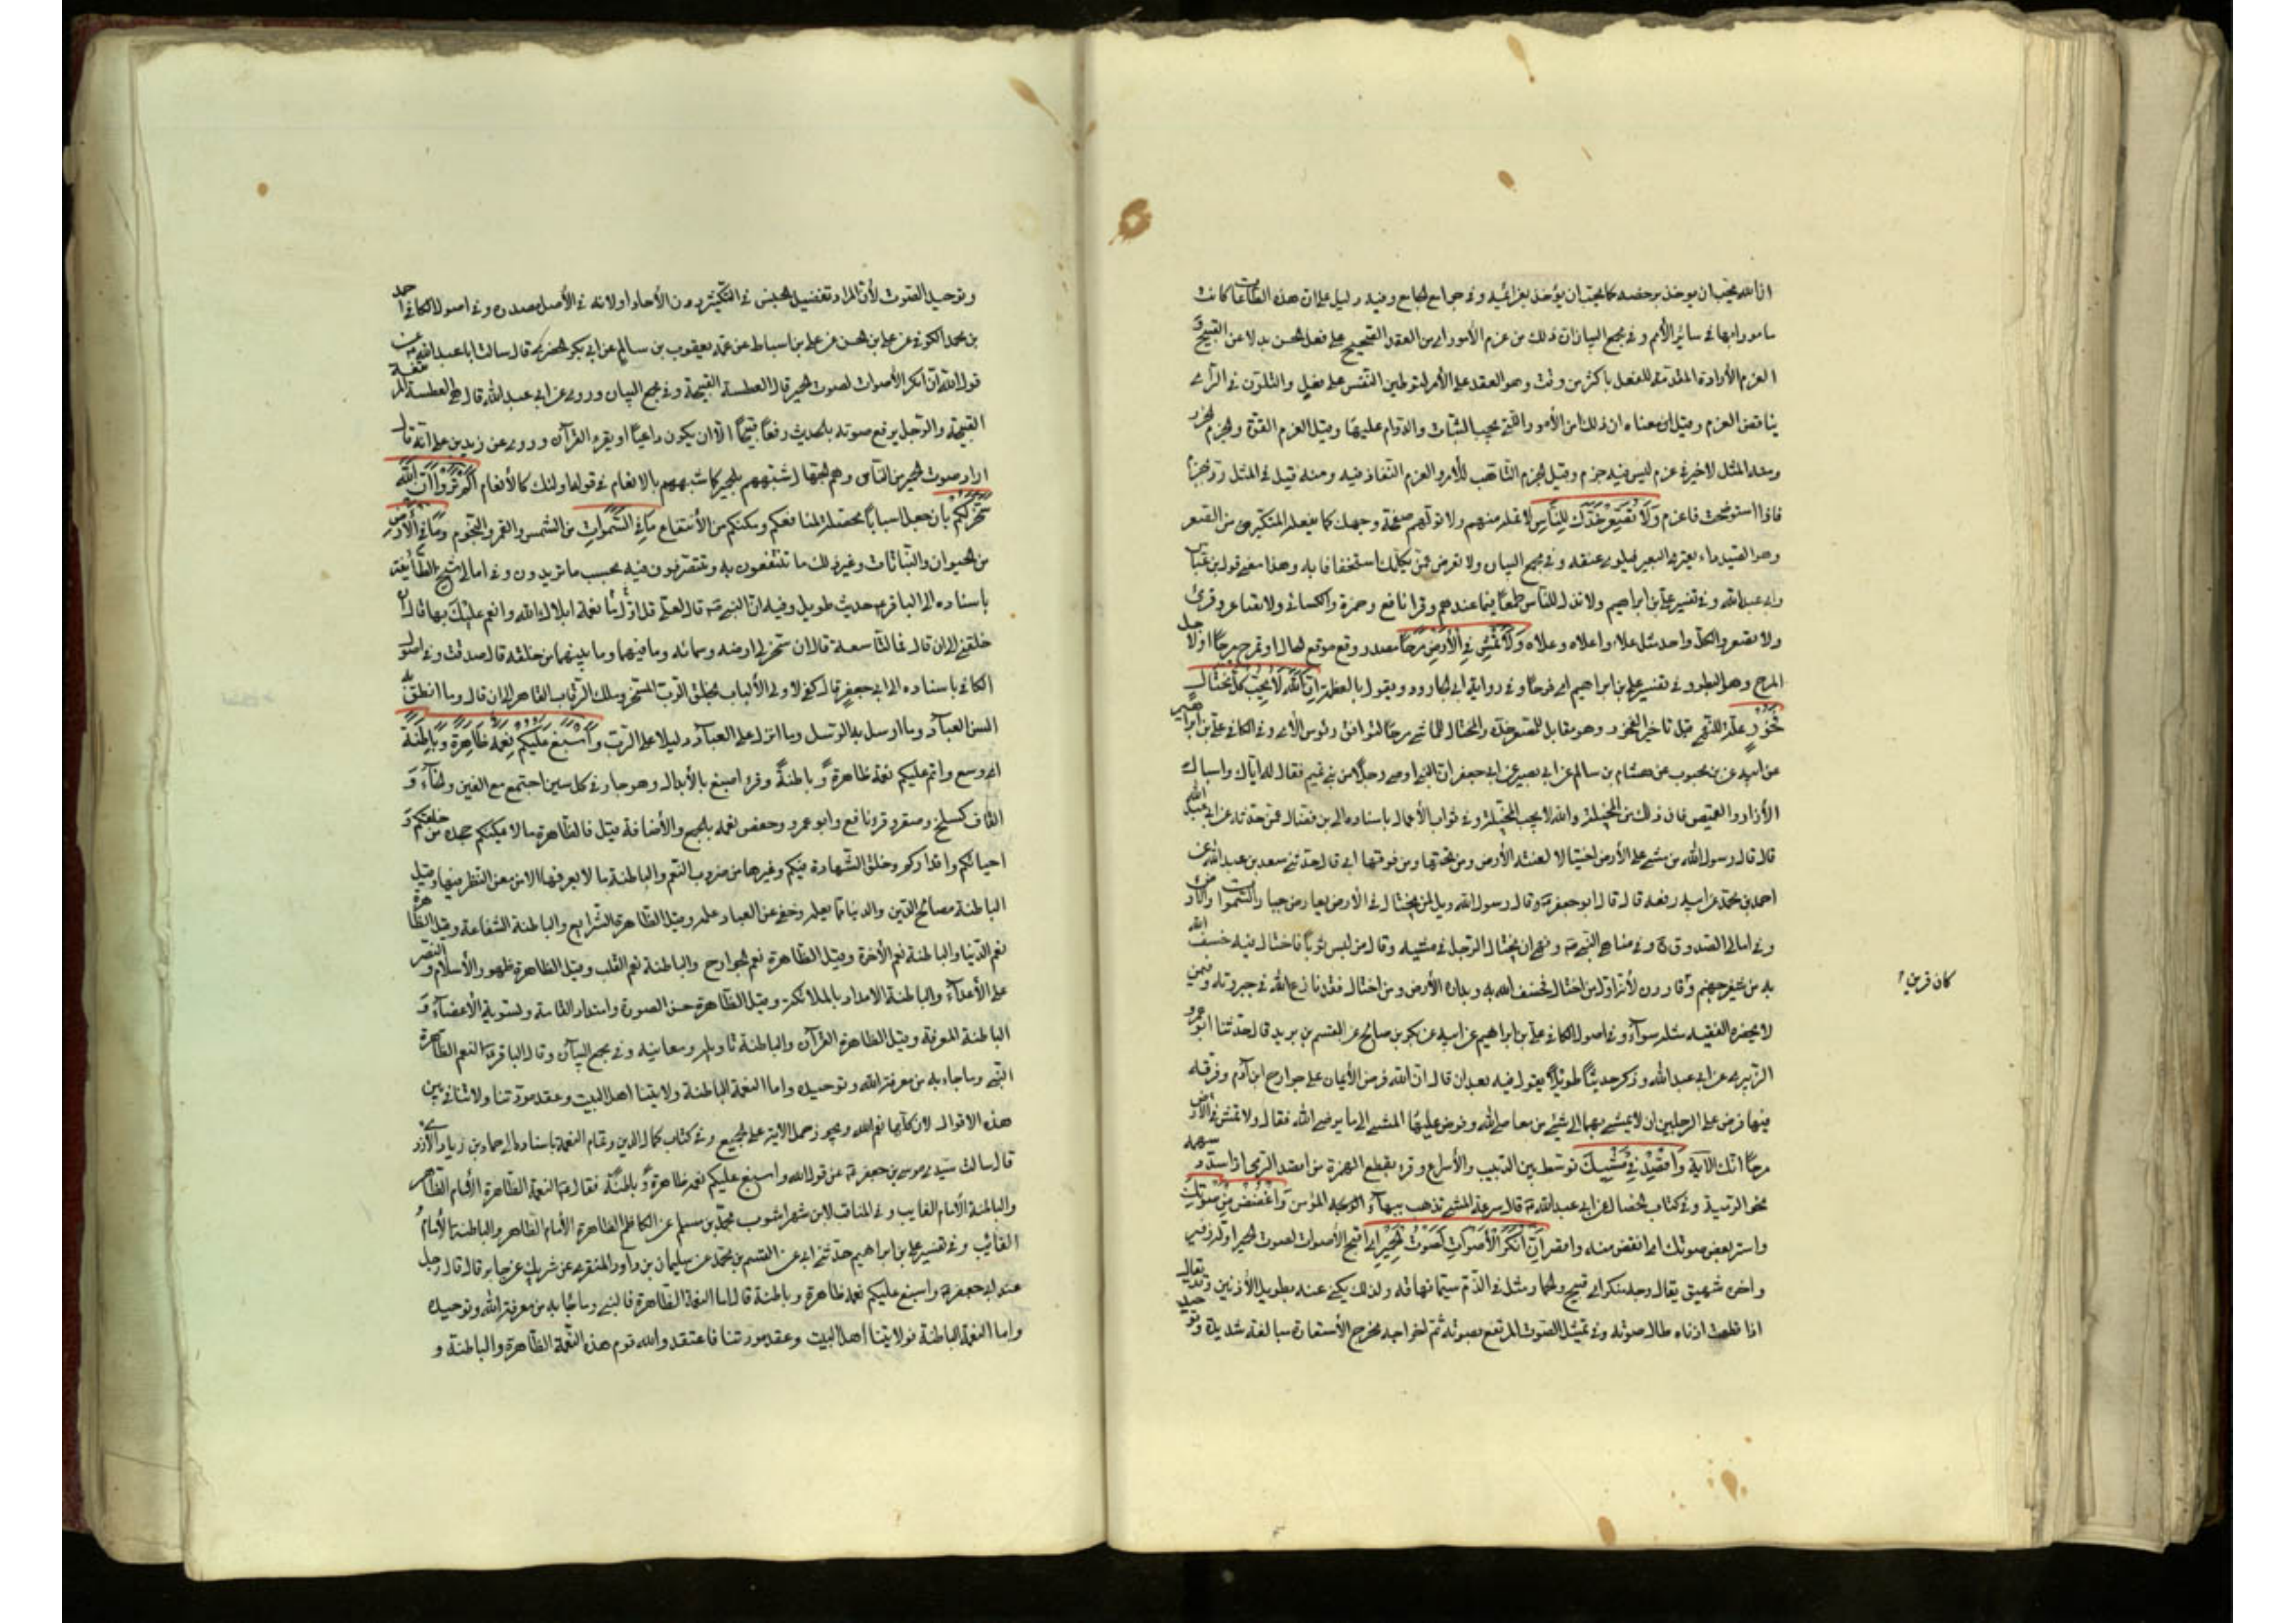 ان الله يحب ان يؤخذ برخصه كما يحب ان يؤخذ بعزائمه وفي جوامع الجامع وفيه دليل على ان هذه الطاعات كانت
مامورا بها في سائر الأمم وفي مجمع البيان ان ذلك من عزم الأمور اي من العقد الصحيح على فعل الحسن بدلا عن القبيح و
العزم الأرادة المتقدمة للفعل باكثر من وقت وهو العقد على الأمر لتوطين النفس على فعله والتلون في الرأى
يناقض العزم وقيل ان معناه ان ذلك من الأمور التي يجب الثبات والدوام عليها وقيل العزم القوة والحزم الحذر
ومنه المثل لا خير في عزم ليس فيه حزم وقيل الحزم التاهب للأمر والعزم النفاذ فيه ومنه قيل في المثل رو بحزم
فاذا استوضحت فاعزم وَلَا تُصَعِّرْ خَدَّكَ لِلنَّاسِ لا تمله منهم ولا تولهم صفحة وجهك كما يفعله المتكبرون من الصعر
وهو الصيد داء يعترى البعير فيلوى عنقه وفي مجمع البيان ولا تعرض عمن يكلمك استخفافا به وهذا معنى قول بن عباس
وابي عبد الله وفي تفسير علي بن ابراهيم ولا تذل للناس طمعًا فيما عندهم وقرا نافع وحمزة والكسائي ولا تصاعر وقرئ
ولا تصعر والكل واحد مثل علاه واعلاه وعالاه وَلَا تَمْشِ فِي الْأَرْضِ مَرَحًا مصدر وقع موقع الحال او تمرح مرحًا او لأجل
المرح وهو البطر وفي تفسير علي بن ابراهيم اي فرحًا وفي رواية ابي الجارود ويقول بالعظمة إِنَّ اللَّهَ لَا يُحِبُّ كُلَّ مُخْتَالٍ
فَخُورٍ علة للنهي قيل تاخير الفخور وهو مقابل للمصعر خده والمختال للماشي مرحًا لتوافق رؤس الآي وفي الكافي علي بن ابراهيم
عن ابيه عن بن محبوب عن هشام بن سالم عن ابي بصير عن ابي جعفر ان النبي اوصى رجلًا من بني تميم فقال له اياك واسبال
الأزار والقميص فان ذلك من المخيلة والله لا يحب المخيلة وفي ثواب الأعمال باسناده الى بن فضال عمن حدثه عن ابي عبد الله
قال قال رسول الله من مشى على الأرض اختيالا لعنته الأرض ومن تحتها ومن فوقها ابي قال حدثني سعد بن عبد الله عن
احمد بن محمد عن ابيه رفعه قال قال ابو جعفر وقال رسول الله ويل لمن يختال في الأرض يعارض جبار السموات والأرض
وفي امالي الصدوق وفي مناهي النبي ونهى ان يختال الرجل في مشيه وقال من لبس ثوبًا فاختال فيه خسف الله
به من شفير جهنم وكان قرين قارون لأنه اول من اختال فخسف الله به وبداره الأرض ومن اختال فقد نازع الله في جبروته وفي من
كان قرين
لا يحضره الفقيه مثله سواء وفي اصول الكافي علي بن ابراهيم عن ابيه عن بكر بن صالح عن القسم بن بريد قال حدثنا ابو عمرو
الزبيري عن ابي عبد الله وذكر حديثًا طويلًا يقول فيه بعد ان قال ان الله فرض الأيمان على جوارح ابن آدم وفرقه
فيها وفرض على الرجلين ان لا يمشى بهما الى شيء من معاصي الله وفرض عليهما المشي الى ما يرضي الله فقال ولا تمش في الأرض
مرحًا انك الآية وَاقْصِدْ فِي مَشْيِكَ توسط بين الدبيب والأسراع وقرء بقطع الهمزة من اقصد الرامي اذا سدد سهمه
نحو الرمية وفي كتاب الخصال عن ابي عبد الله قال سرعة المشي تذهب ببهاء المؤمن وَاغْضُضْ مِنْ صَوْتِكَ
واستر بعض صوتك اى انقص منه واقصر إِنَّ أَنْكَرَ الْأَصْوَاتِ لَصَوْتُ الْحَمِيرِ اى اقبح الأصوات لصوت الحمير اوله زفير
واخره شهيق يقال وجه منكر اى قبيح والحمار مثل في الذم سيما نهاقه ولذلك يكنى عنه بطويل الأذنين وقد يقال
اذا طالت اذناه طال صوته وفي تمثيل الصوت المرتفع بصوته ثم اخراجه مخرج الأستعارة مبالغة شديدة وتوحيد
وتوحيد الصوت لأن المراد تفضيل الجنس في التكثير دون الأحاد او لانه في الأصل مصدر وفي اصول الكافي احمد
بن محمد الكوفي عن علي بن الحسن عن علي بن اسباط عن عمه يعقوب بن سالم عن ابي بكر الحضرمي قال سالت ابا عبد الله عن
قول الله ان انكر الأصوات لصوت الحمير قال العطسة القبيحة وفي مجمع البيان وروى عن ابي عبد الله قال هي العطسة المرتفعة
القبيحة والرجل يرفع صوته بالحديث رفعًا قبيحًا الا ان يكون داعيًا او يقرء القرآن وروى عن زيد بن علي انه قال
اراد صوت الحمير من الناس وهم الجهال شبههم بالحمير كما شبههم بالانعام في قوله اولئك كالأنعام أَلَمْ تَرَوْا أَنَّ اللَّهَ
سَخَّرَ لَكُمْ بان جعل اسبابًا محصلة لمنافعكم ومكنكم من الأنتفاع مَا فِي السَّمَوَاتِ من الشمس والقمر والنجوم وَمَا فِي الْأَرْضِ
من الحيوان والنباتات وغير ذلك ما تنتفعون به وتتصرفون فيه بحسب ما تريدون وفي امالي شيخ الطائفة
باسناده الى الباقر حديث طويل وفيه ان النبي قال لعلي قل اول نعمة ابلاك الله وانعم عليك بها قال ان
خلقني الى ان قال فما التاسعة قال ان سخر لي ارضه وسمائه وما فيهما وما بينهما من خلقه قال صدقت وفي اصول
الكافي باسناده الى ابي جعفر قال كفى لاولي الألباب بخلق الرب المسخر وملك الرب القاهر الى ان قال وما انطق به
السن العباد وما ارسل به الرسل وما انزل على العباد دليلا على الرب وَأَسْبَغَ عَلَيْكُمْ نِعَمَهُ ظَاهِرَةً وَبَاطِنَةً
اى وسع واتم عليكم نعمه ظاهرة وباطنة وقرء اصبغ بالأبدال وهو جار في كل سين اجتمع مع الغين والخاء و
القاف كسلخ وسقر وقرء نافع وابو عمرو وحفص نعمه بالجمع والأضافة قيل فالظاهرة ما لا يمكنكم جحده من خلقكم و
احيائكم واقداركم وخلق الشهادة فيكم وغيرها من ضروب النعم والباطنة ما لا يعرفها الا من امعن النظر فيها وقيل
الباطنة مصالح الدين والدنيا مما يعلمه وخفى عن العباد علمه وقيل الظاهرة الشرايع والباطنة الشفاعة وقيل الظاهرة
نعم الدنيا والباطنة نعم الأخرة وقيل الظاهرة نعم الجوارح والباطنة نعم القلب وقيل الظاهرة ظهور الأسلام والنصر
على الأعداء والباطنة الامداد بالملائكة وقيل الظاهرة حسن الصورة وامتداد القامة وتسوية الأعضاء و
الباطنة المعرفة وقيل الظاهرة القرآن والباطنة تاويله ومعانيه وفي مجمع البيان وقال الباقر النعم الظاهرة
النبي وما جاء به من معرفة الله وتوحيده واما النعمة الباطنة ولايتنا اهل البيت وعقد مودتنا ولا تنافي بين
هذه الاقوال لان كلها نعم الله ويجوز حمل الآية على الجميع وفي كتاب كمال الدين وتمام النعمة باسناده الى حماد بن زياد الأزدى
قال سالت سيدي موسى بن جعفر عن قول الله واسبغ عليكم نعمه ظاهرة وباطنة فقال النعمة الظاهرة الأمام الظاهر
والباطنة الأمام الغايب وفي المناقب لابن شهر اشوب محمد بن مسلم عن الكاظم الظاهرة الأمام الظاهر والباطنة الأمام
الغائب وفي تفسير علي بن ابراهيم حدثني ابي عن القسم بن محمد عن سليمان بن داود المنقري عن شريك عن جابر قال قال رجل
عند ابي جعفر واسبغ عليكم نعمه ظاهرة وباطنة قال اما النعمة الظاهرة فالنبي وما جاء به من معرفة الله وتوحيده
واما النعمة الباطنة فولايتنا اهل البيت وعقد مودتنا فاعتقد والله قوم هذه النعمة الظاهرة والباطنة و